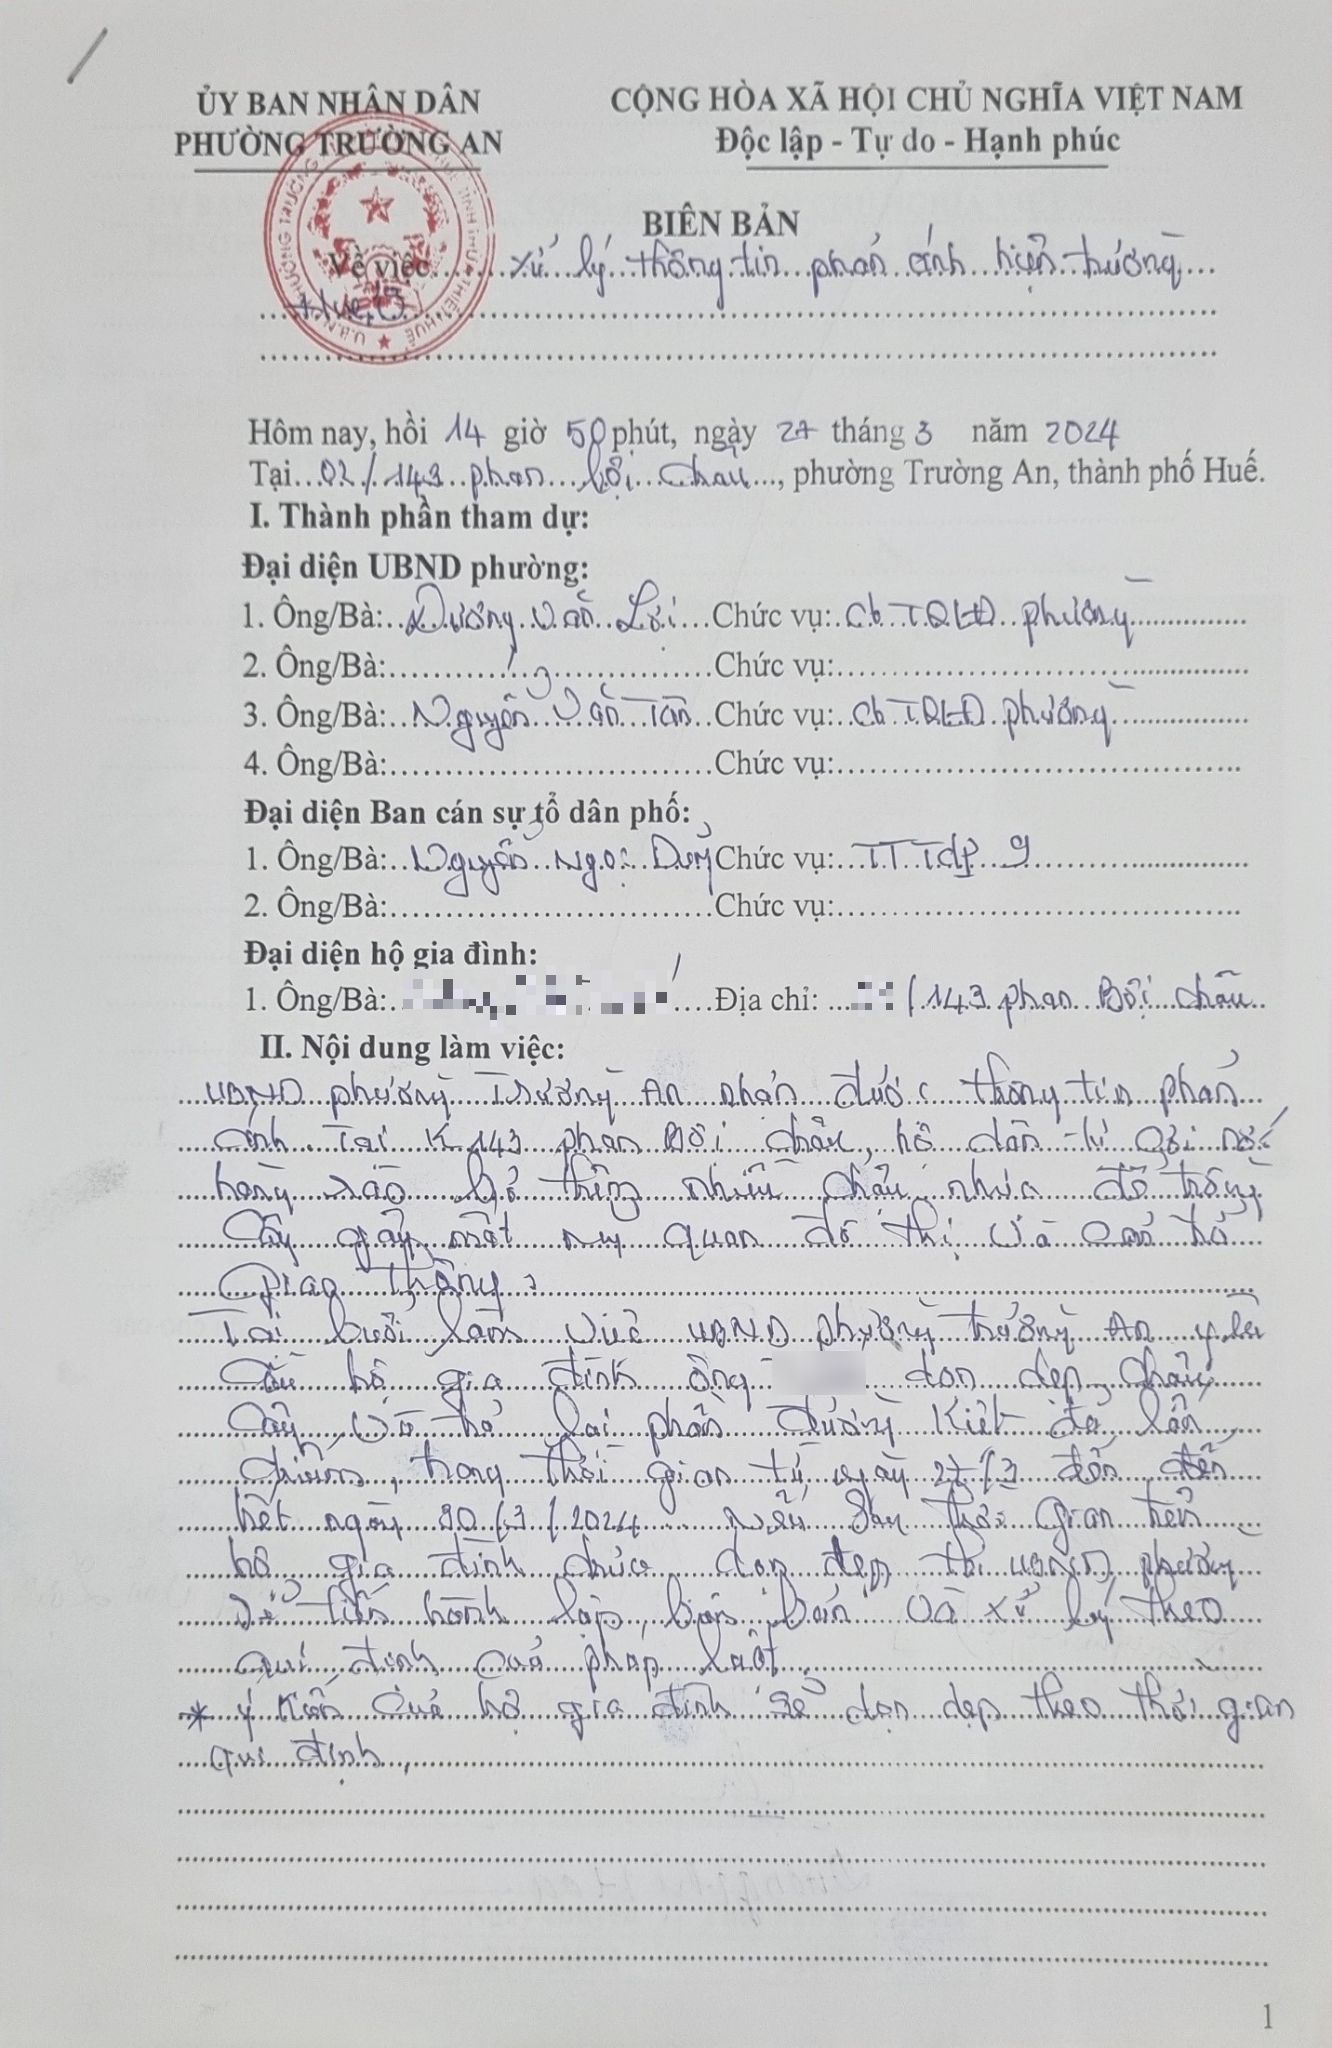 ỦY BAN NHÂN DÂN
PHƯỜNG TRƯỜNG AN
CỘNG HÒA XÃ HỘI CHỦ NGHĨA VIỆT NAM
Độc lập - Tự do - Hạnh phúc
BIÊN BẢN
Về việc xử lý thông tin phản ánh hiện trường
Hue,S
Hôm nay, hồi 14 giờ 50 phút, ngày 27 tháng 3 năm 2024
Tại 02/143 phan bội châu, phường Trường An, thành phố Huế.
I. Thành phần tham dự:
Đại diện UBND phường:
1. Ông/Bà: Dương Văn Lợi Chức vụ: Cb TQLĐ phường
2. Ông/Bà: Chức vụ:
3. Ông/Bà: Nguyễn Văn Tấn Chức vụ: Cb TQLĐ phường
4. Ông/Bà: Chức vụ:
Đại diện Ban cán sự tổ dân phố:
1. Ông/Bà: Nguyễn Ngọc Chức vụ: TT Tdp 9
2. Ông/Bà: Chức vụ:
Đại diện hộ gia đình:
1. Ông/Bà: Địa chỉ: /143 phan Bội châu
II. Nội dung làm việc:
UBND phường Trường An nhận được thông tin phản
ánh Tại K 143 phan Bội châu, hộ dân
hàng rào thùng nhiều chậu nhựa để trồng
Cây gây mất mỹ quan đô thị Và Cản trở
Giao thông.
Tại buổi làm việc UBND phường trường An yêu
Cầu hộ gia đình ông dọn dẹp chậu
Cây, và trả lại phần đường Kiệt đã lấn
chiếm, trong thời gian từ ngày 27/3 đến đến
hết ngày 30/3/2024 Nếu Sau thời Gian trên
hộ gia đình chưa dọn dẹp thì UBND phường
Sẽ tiến hành lập biên bản và xử lý theo
qui định của pháp luật.
* ý Kiến Của hộ gia đình Sẽ dọn dẹp theo thời gian
qui định.
1